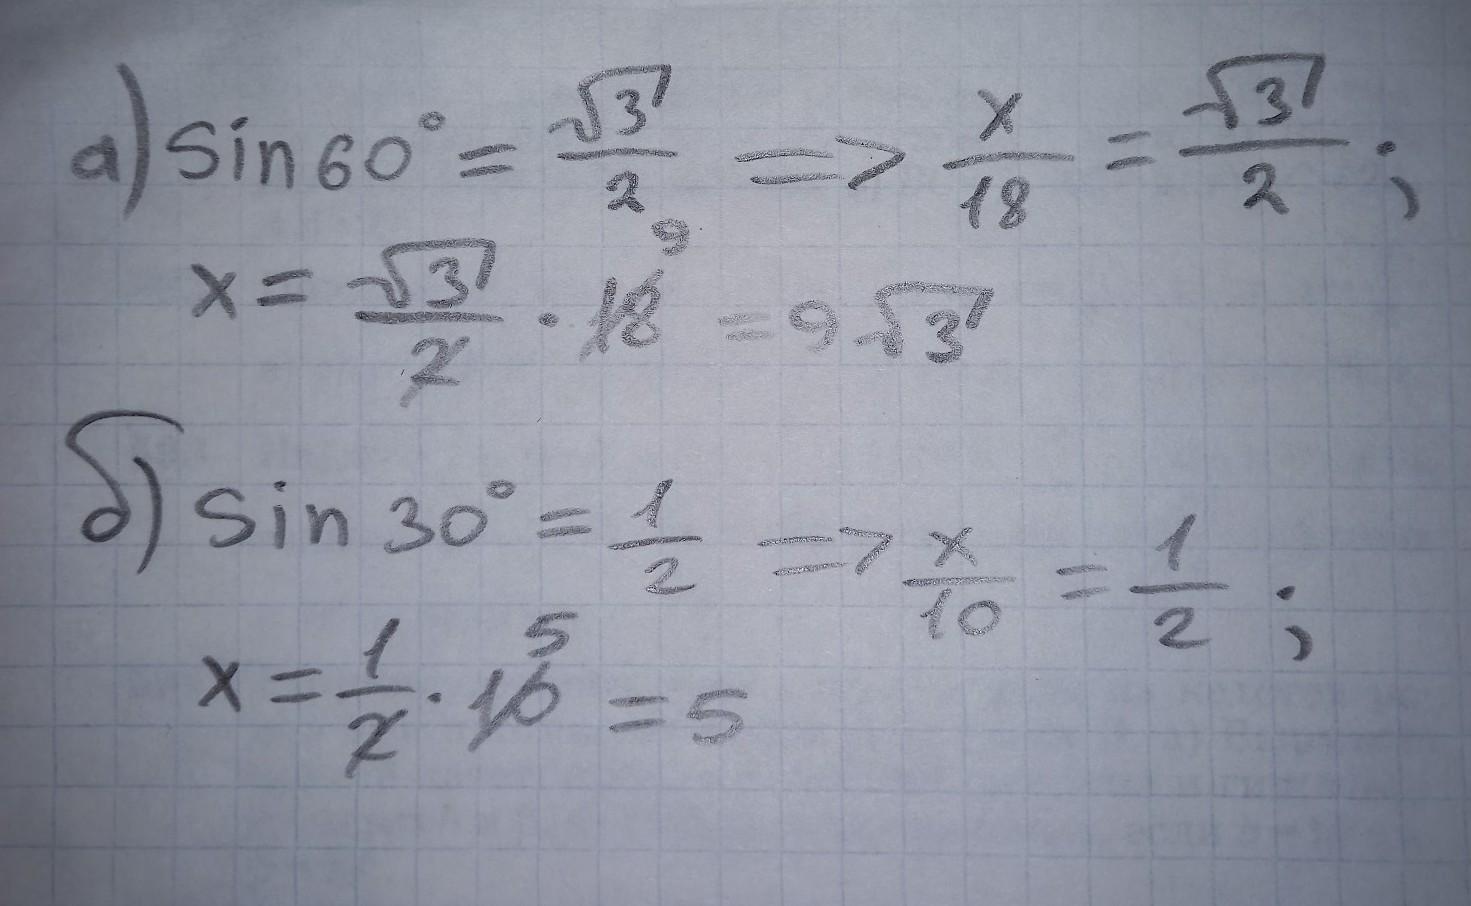 а) sin 60° = √3/2 => x/18 = √3/2 ;
x = √3/2 · 18 9 = 9√3
б) sin 30° = 1/2 => x/10 = 1/2 ;
x = 1/2 · 10 5 = 5